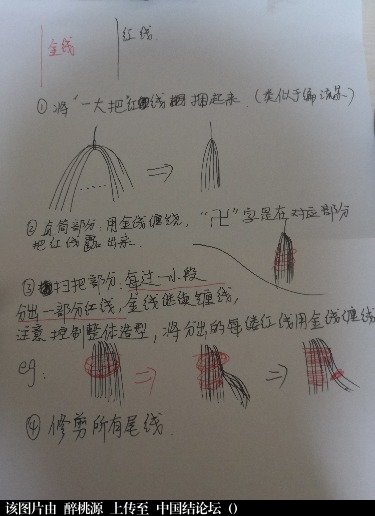 金线 红线
①将“一大把”红线捆起来.(类似于编流苏)
②直筒部分,用金线缠绕,“卍”字是在对应部分
把红线露出来.
③扫把部分,每过一小段
分出一部分红线,金线继续缠线,
注意控制整体造型,将分出的每缕红线用金线缠绕
eg.
④修剪所有尾线.
该图片由 醉桃源 上传至 中国结论坛 ()